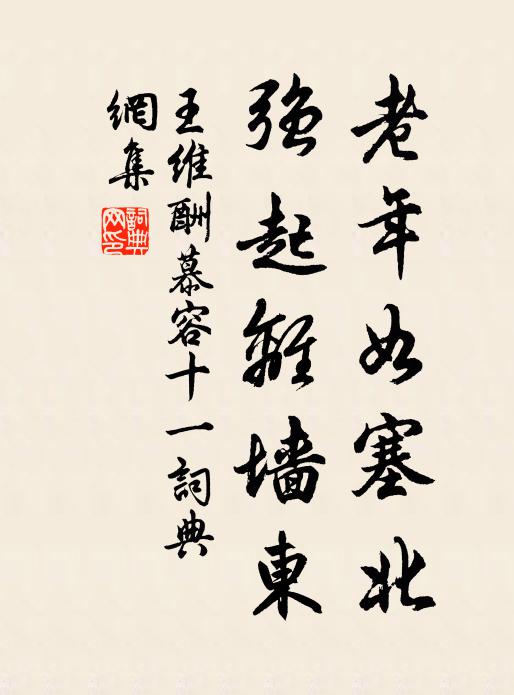 老年如塞北
强起離墙東
王維酬慕容十一詞典
網集
詞典
网印